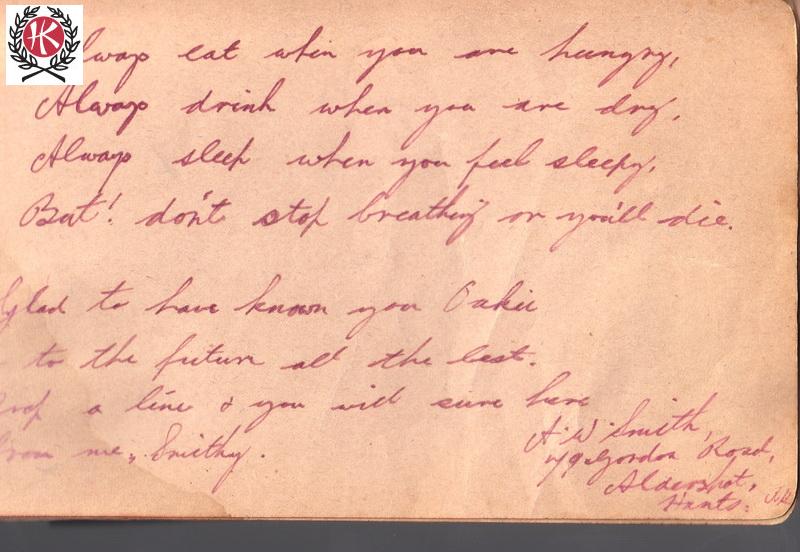 HK
Always eat when you are hungry,
Always drink when you are dry,
Always sleep when you feel sleepy,
But! don't stop breathing or you'll die.
Glad to have known you Oakie
to the future all the best.
Drop a line & you will sure here
from me, Smithy.
A. W. Smith,
Gordon Road,
Aldershot,
Hants.